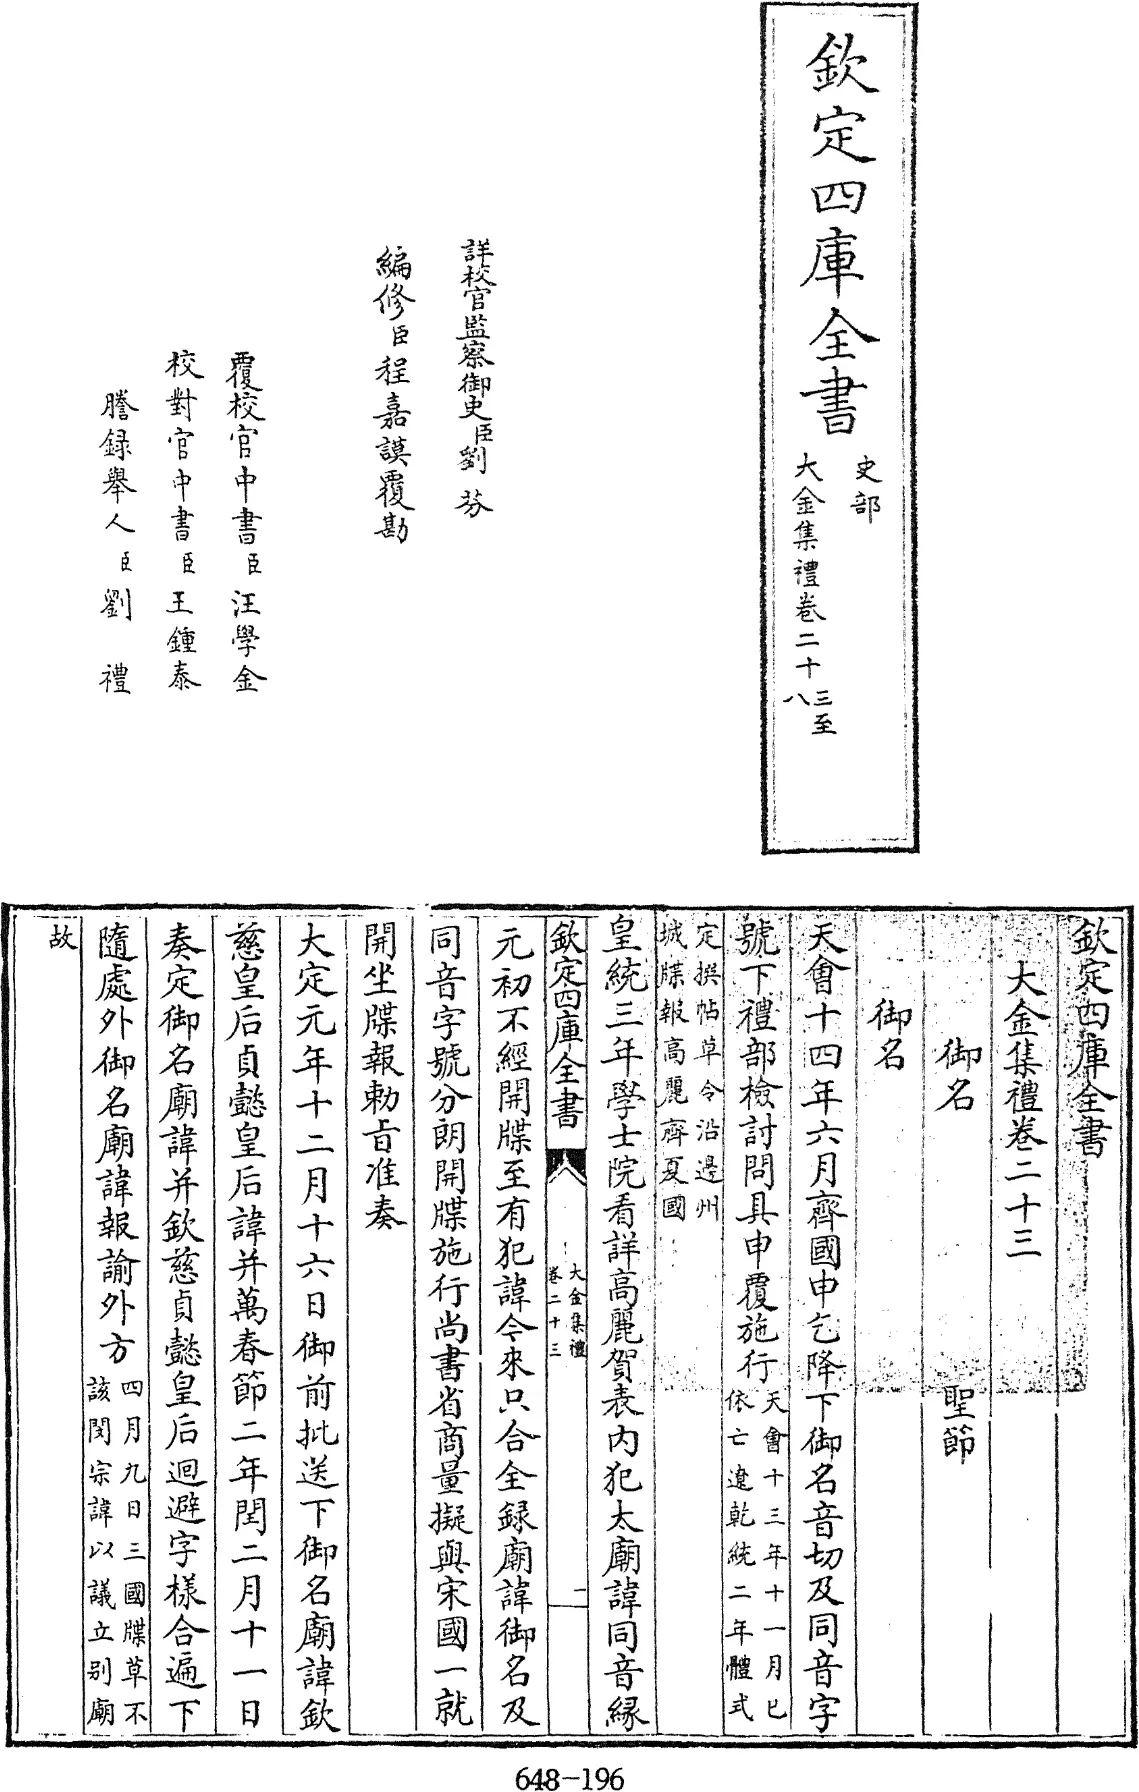 欽定四庫全書
史部
大金集禮卷二十三至
八
詳校官監察御史臣劉芬
編修臣程嘉謨覆勘
覆校官中書臣汪學金
校對官中書臣王鍾泰
謄録舉人臣劉禮
欽定四庫全書
大金集禮卷二十三
御名 聖節
御名
天會十四年六月齊國申乞降下御名音切及同音字
號下禮部檢討問具申覆施行天會十三年十一月已
依亡遼乾統二年體式
定撰帖草令沿邊州
城牒報高麗齊夏國
皇統三年學士院看詳高麗賀表内犯太廟諱同音縁
欽定四庫全書
大金集禮
卷二十三
一
元初不經開牒至有犯諱今來只合全録廟諱御名及
同音字號分朗開牒施行尚書省商量擬與宋國一就
開坐牒報勅㫖准奏
大定元年十二月十六日御前批送下御名廟諱欽
慈皇后貞懿皇后諱并萬春節二年閏二月十一日
奏定御名廟諱并欽慈貞懿皇后迴避字樣合遍下
隨處外御名廟諱報諭外方四月九日三國牒草不
該閔宗諱以議立别廟
故
648-196